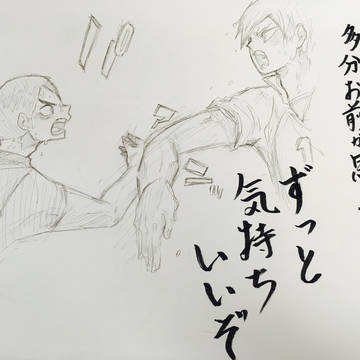 多分お前が思
ずっと
気持ち
いいぞ